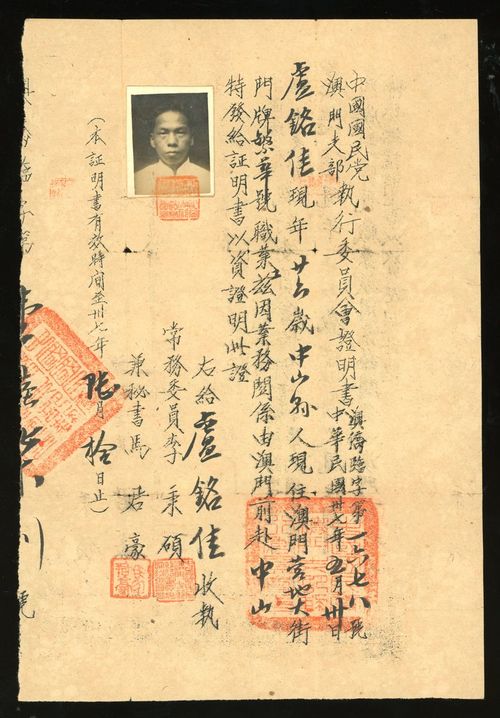 中國國民党
澳門支部執行委員會證明書
澳僑臨字第一六七八號
中華民國卅七年五月卅日
盧銘佳現年廿六歲中山縣人現住澳門營地大街
門牌繁華號職業茲因業務關係由澳門前赴中山
特發給証明書以資證明此證
右給盧銘佳收執
常務委員李秉碩
兼秘書馬君豪
(本証明書有效時间至卅七年陸月拾日止)